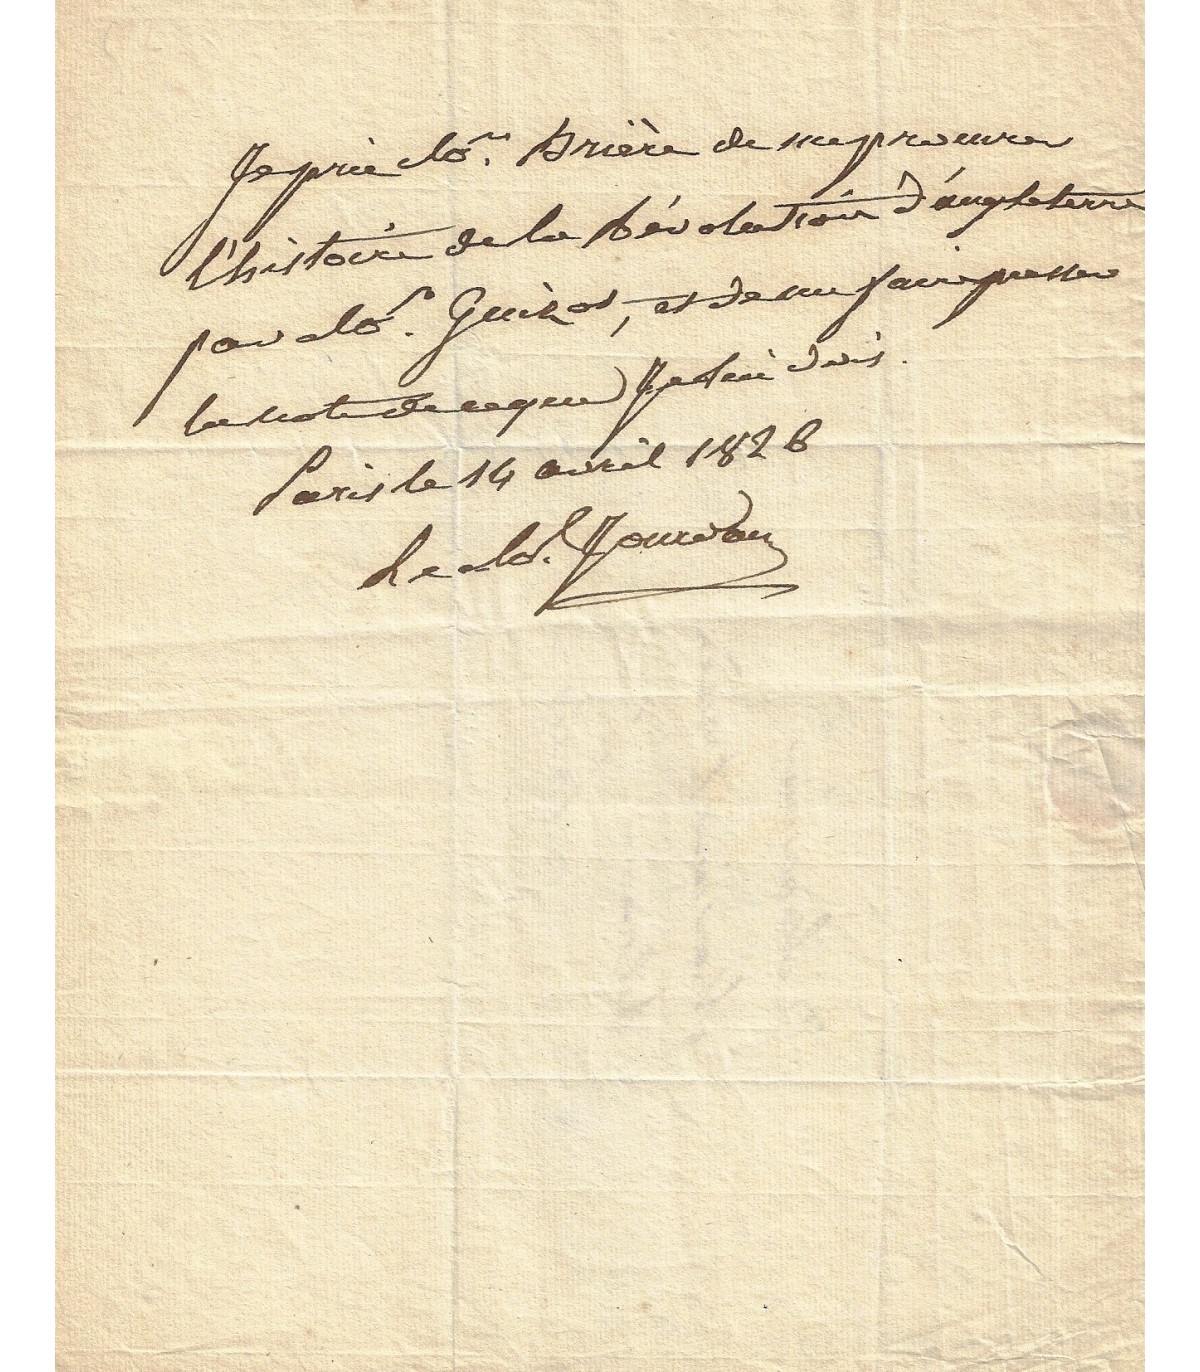 Je prie Mr. Brière de me procurer
l'histoire de la Révolution d'angleterre
par Mr. Guizot, et de me faire passer
la note de ce que Je lui dois.
Paris le 14 avril 1826
Le Mal. Jourdan